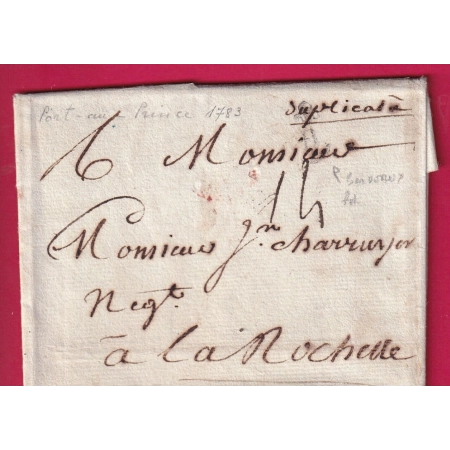 Port-au-Prince 1783
Duplicata
6 Monsieur
14
Monsieur Jn. charruyer
Negt.
à La Rochelle